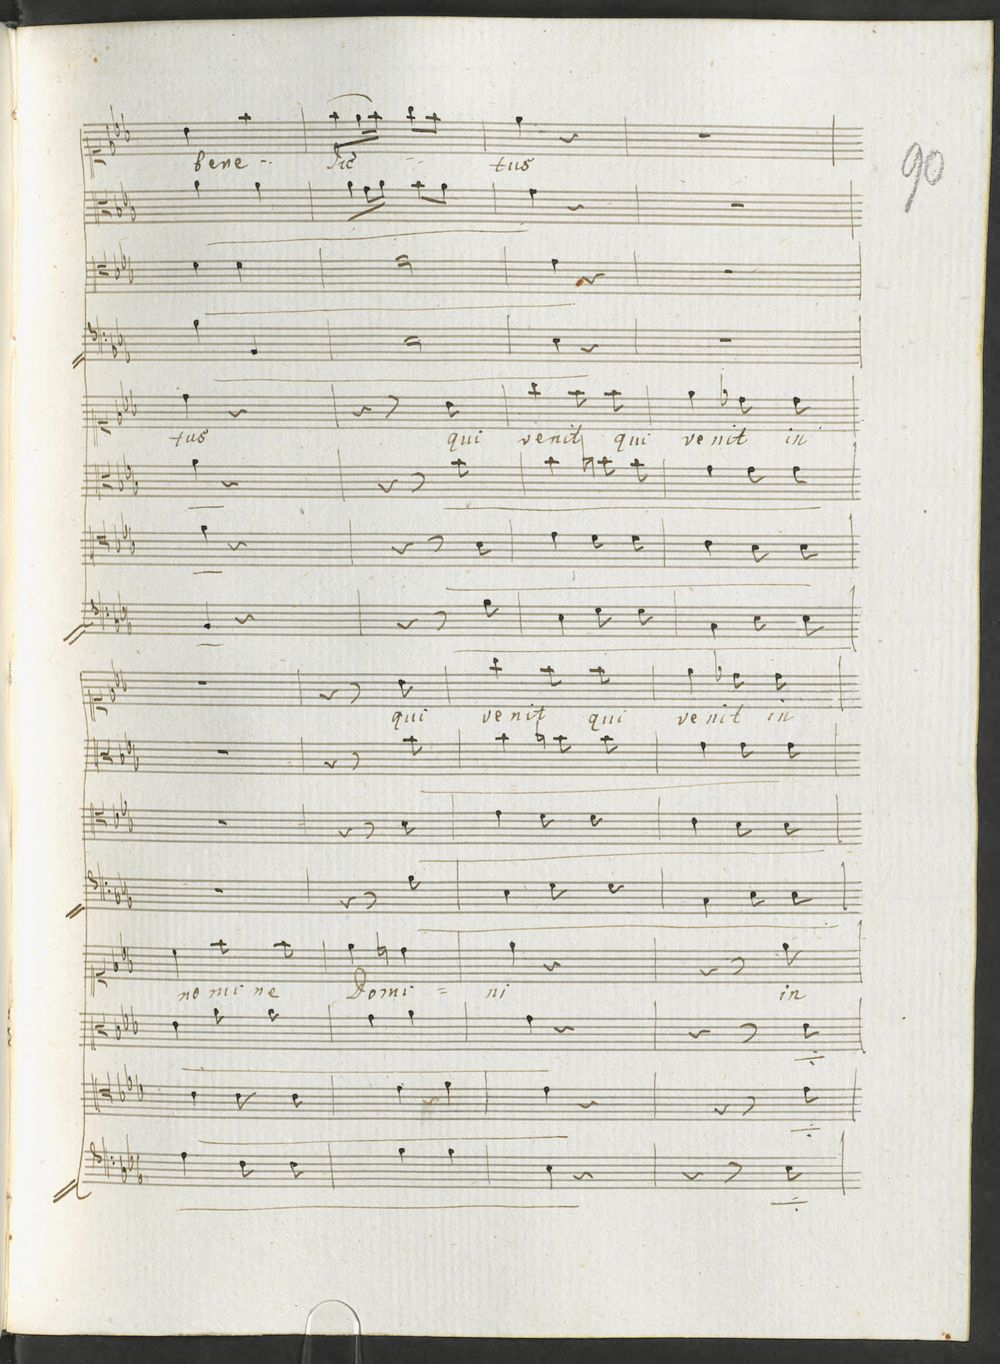 90
bene - dic - tus
tus qui venit qui venit in
qui venit qui venit in
nomine Domi = ni in